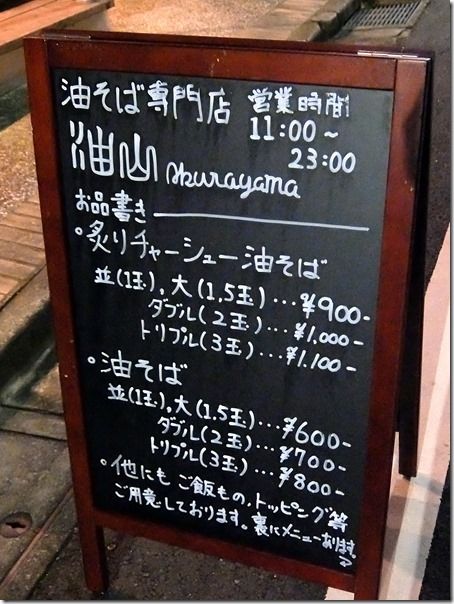 油そば専門店 営業時間
11:00～
油山 Aburayama 23:00
お品書き
・炙りチャーシュー油そば
並(1玉)。大(1.5玉)…¥900-
ダブル(2玉)…¥1,000-
トリプル(3玉)…¥1,100-
・油そば
並(1玉)。大(1.5玉)…¥600-
ダブル(2玉)…¥700-
トリプル(3玉)…¥800-
・他にもご飯もの、トッピング等
ご用意しております。裏にメニューあります。